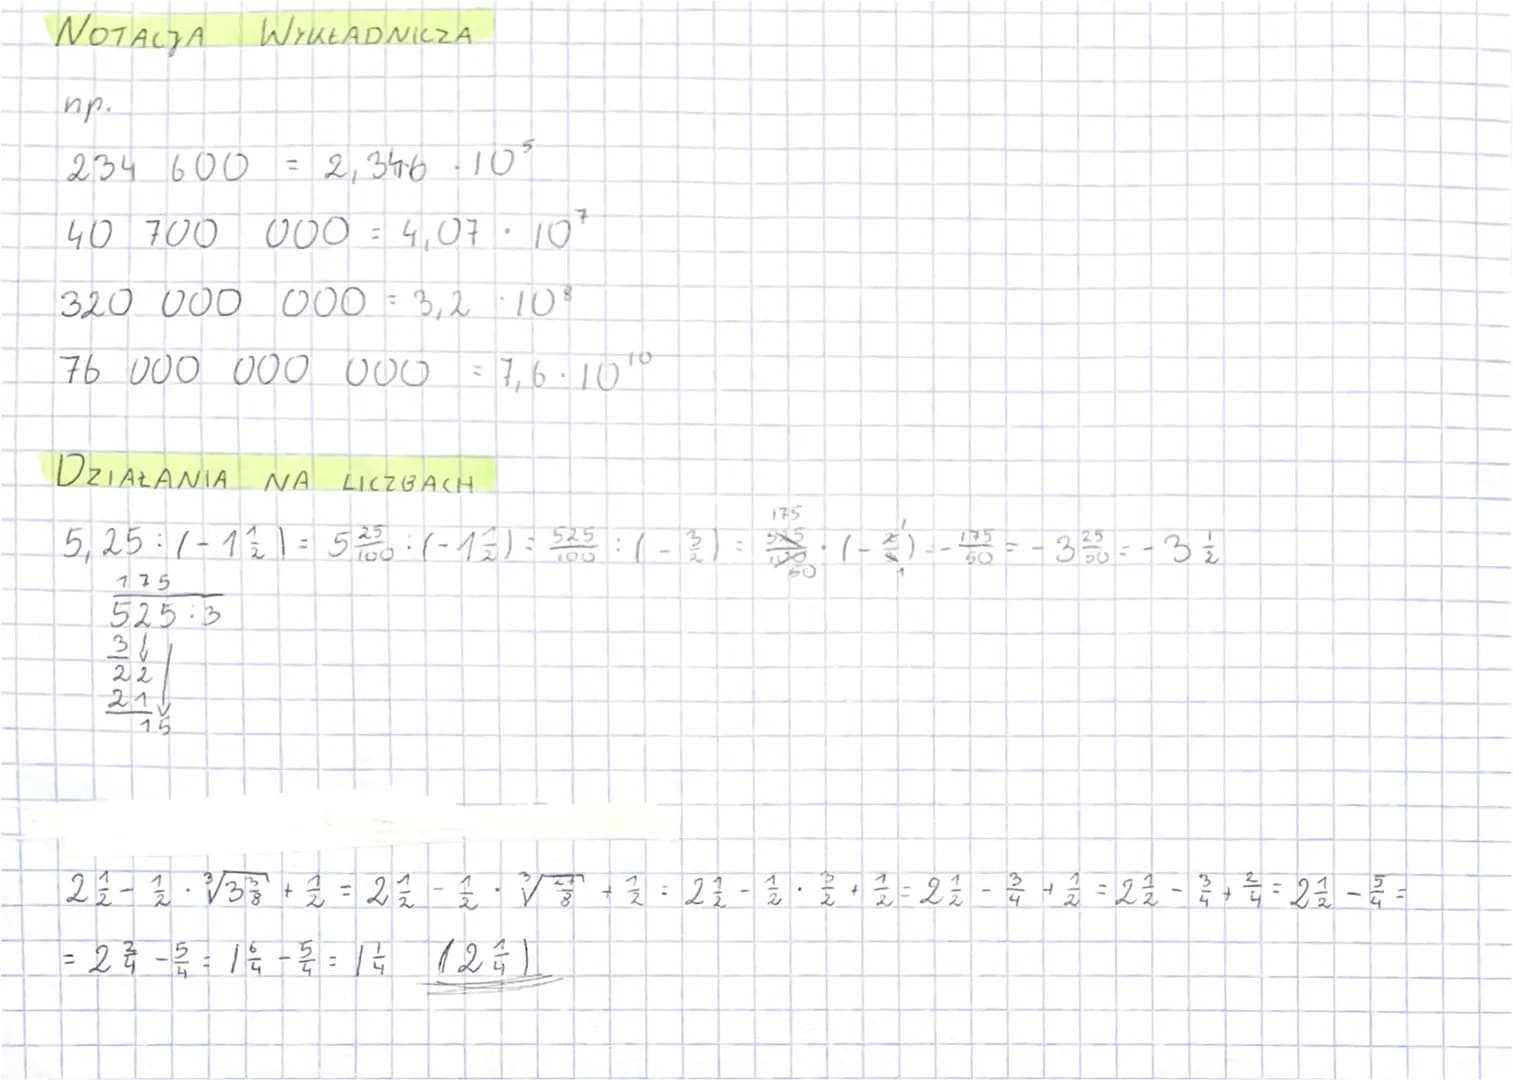 NOTACJA WYKŁADNICZA
np.
234 600 = 2,346 · 10⁵
40 700 000 = 4,07 · 10⁷
320 000 000 = 3,2 · 10⁸
76 000 000 000 = 7,6 · 10¹⁰
DZIAŁANIA NA LICZBACH
5,25 : (-1 1/2) = 5 25/100 : (-1 1/2) = 525/100 : (-3/2) = 525/100 · (-2/3) = -175/50 = -3 25/50 = -3 1/2
175 50 1 1
175
525 : 3
3
22
21
15
2 1/2 - 1/2 · ∛(3 3/8) + 1/2 = 2 1/2 - 1/2 · ∛(27/8) + 1/2 = 2 1/2 - 1/2 · 3/2 + 1/2 = 2 1/2 - 3/4 + 1/2 = 2 1/2 - 3/4 + 2/4 = 2 1/2 - 5/4 =
= 2 2/4 - 5/4 = 1 6/4 - 5/4 = 1 1/4 (2 1/4)